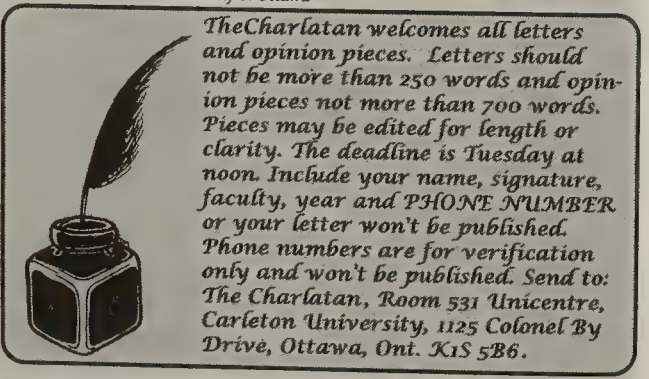 TheCharlatan welcomes all letters
and opinion pieces. Letters should
not be more than 250 words and opin-
ion pieces not more than 700 words.
Pieces may be edited for length or
clarity. The deadline is Tuesday at
noon. Include your name, signature,
faculty, year and PHONE NUMBER
or your letter won't be published.
Phone numbers are for verification
only and won't be published. Send to:
The Charlatan, Room 531 Unicentre,
Carleton University, 1125 Colonel By
Drive, Ottawa, Ont. K1S 5B6.